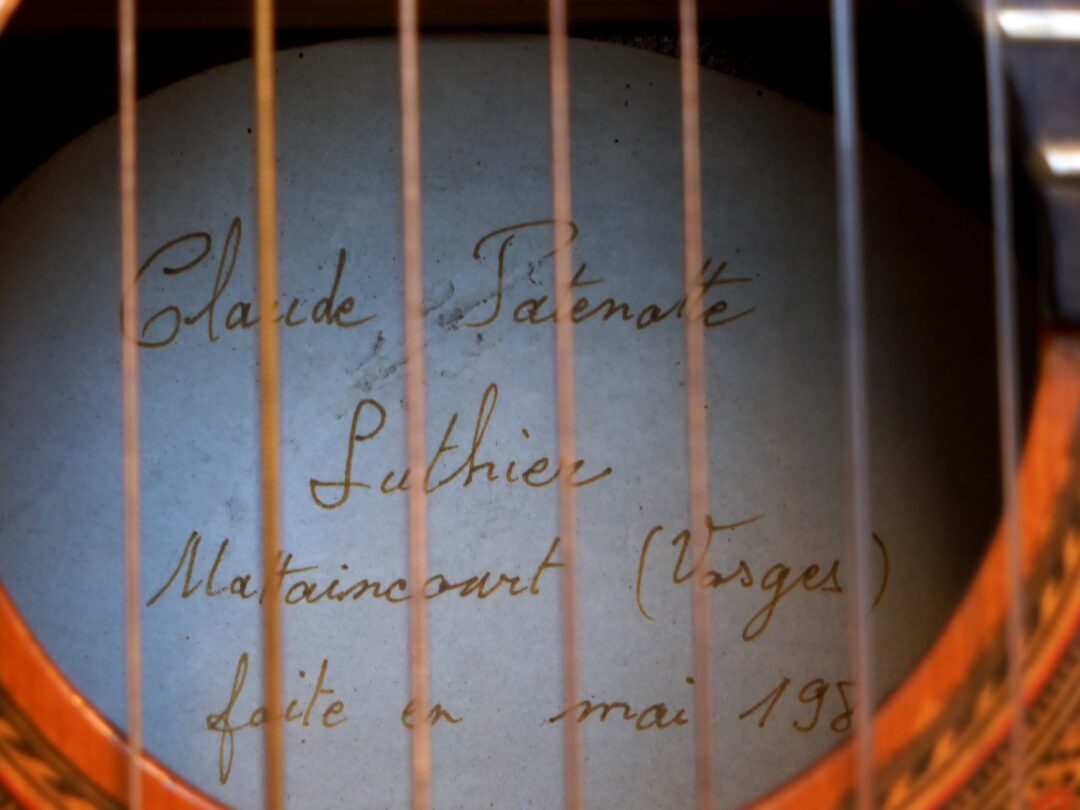 Claude Patenotte
Luthier
Mattaincourt (Vosges)
faite en mai 198